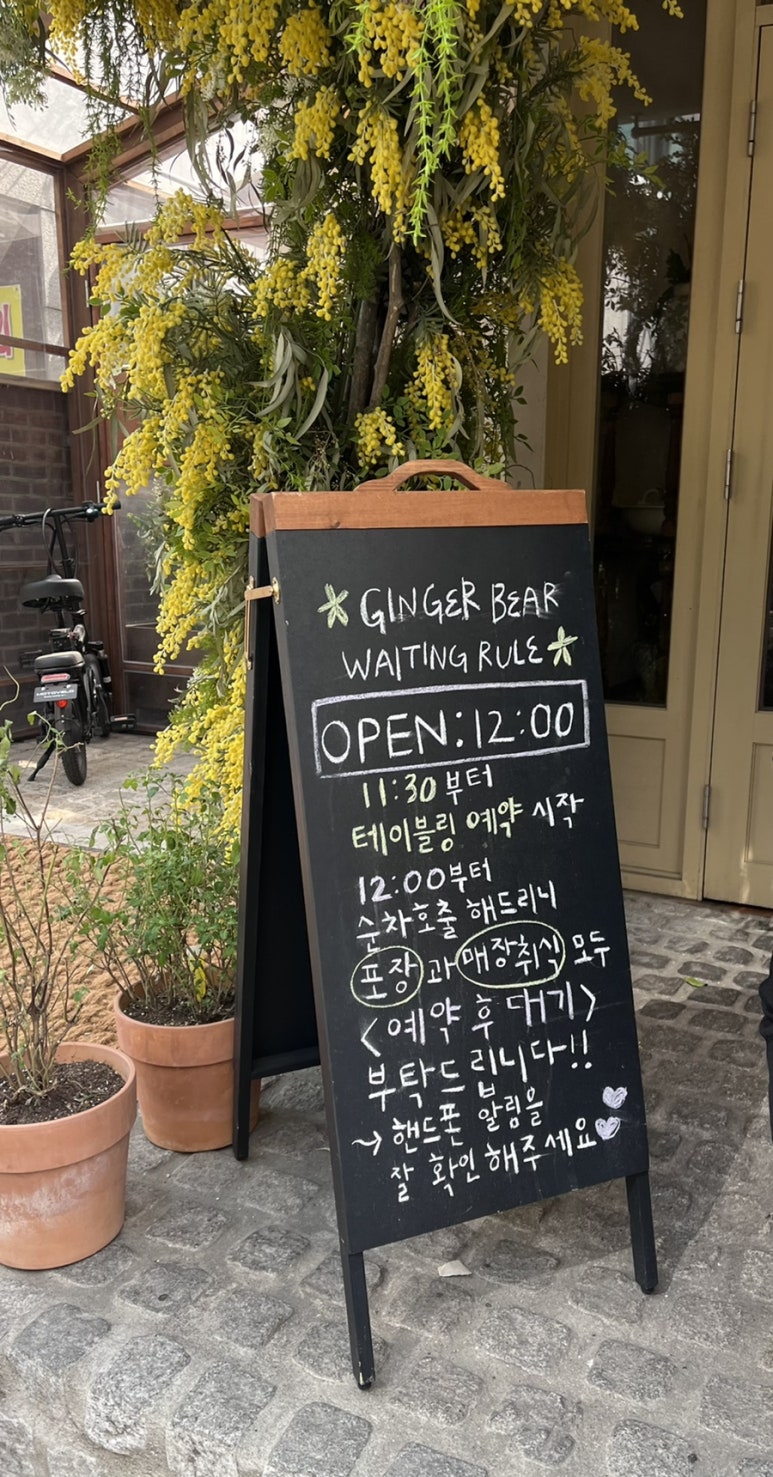 * GINGER BEAR
WAITING RULE *
OPEN:12:00
11:30 부터
테이블링 예약 시작
12:00부터
순차호출 해드리니
포장과 매장취식 모두
<예약 후 대기>
부탁드립니다!!
→ 핸드폰 알림을
잘 확인해주세요